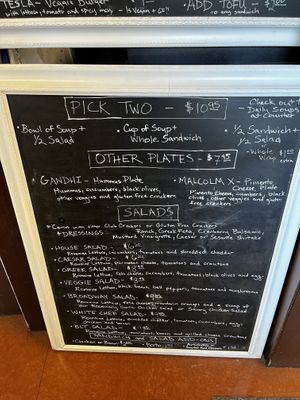 TESLA - Veggie Burger
with lettuce, tomato and spicy mayo - Is Vegan + GF!!
ADD TOFU - $1.00
to any sandwich
PICK TWO - $10.95
Check out
Daily Soups
at Counter
• Bowl of Soup +
1/2 Salad
• Cup of Soup +
Whole Sandwich
• 1/2 Sandwich +
1/2 Salad
- Whole $1.00
Wrap extra
OTHER PLATES - $7.95
GANDHI - Hummus Plate
Hummus, cucumbers, black olives,
other veggies and gluten free crackers
• MALCOLM X - Pimento
Cheese Plate
Pimento Cheese, cucumbers, black
olives, other veggies and gluten
free crackers
SALADS
* Come with either Club Crackers or Gluten Free Crackers
* DRESSINGS: Ranch, Greek Feta, Creamy Balsamic,
Mustard Vinaigrette, Caesar or Sesame Shiitake
• HOUSE SALAD -
Romaine Lettuce, cucumbers, tomatoes and shredded cheddar
• CAESAR SALAD -
Romaine Lettuce, parmesan cheese, tomatoes and croutons
• GREEK SALAD -
Romaine Lettuce, feta cheese, cucumbers, tomatoes, black olives and egg
• VEGGIE SALAD -
Romaine Lettuce, black beans, bell peppers, tomatoes and mushrooms
• BROADWAY SALAD -
Romaine Lettuce, tomatoes and a scoop of
Salad or Skinny Chicken Salad
• WHITE CHEF SALAD -
Romaine Lettuce, shredded cheddar, tomatoes, cucumbers, egg,
chicken and bacon
• BLT SALAD -
Romaine Lettuce, bacon and grilled cheese croutons
SANDWICH and SALAD ADD-ONS